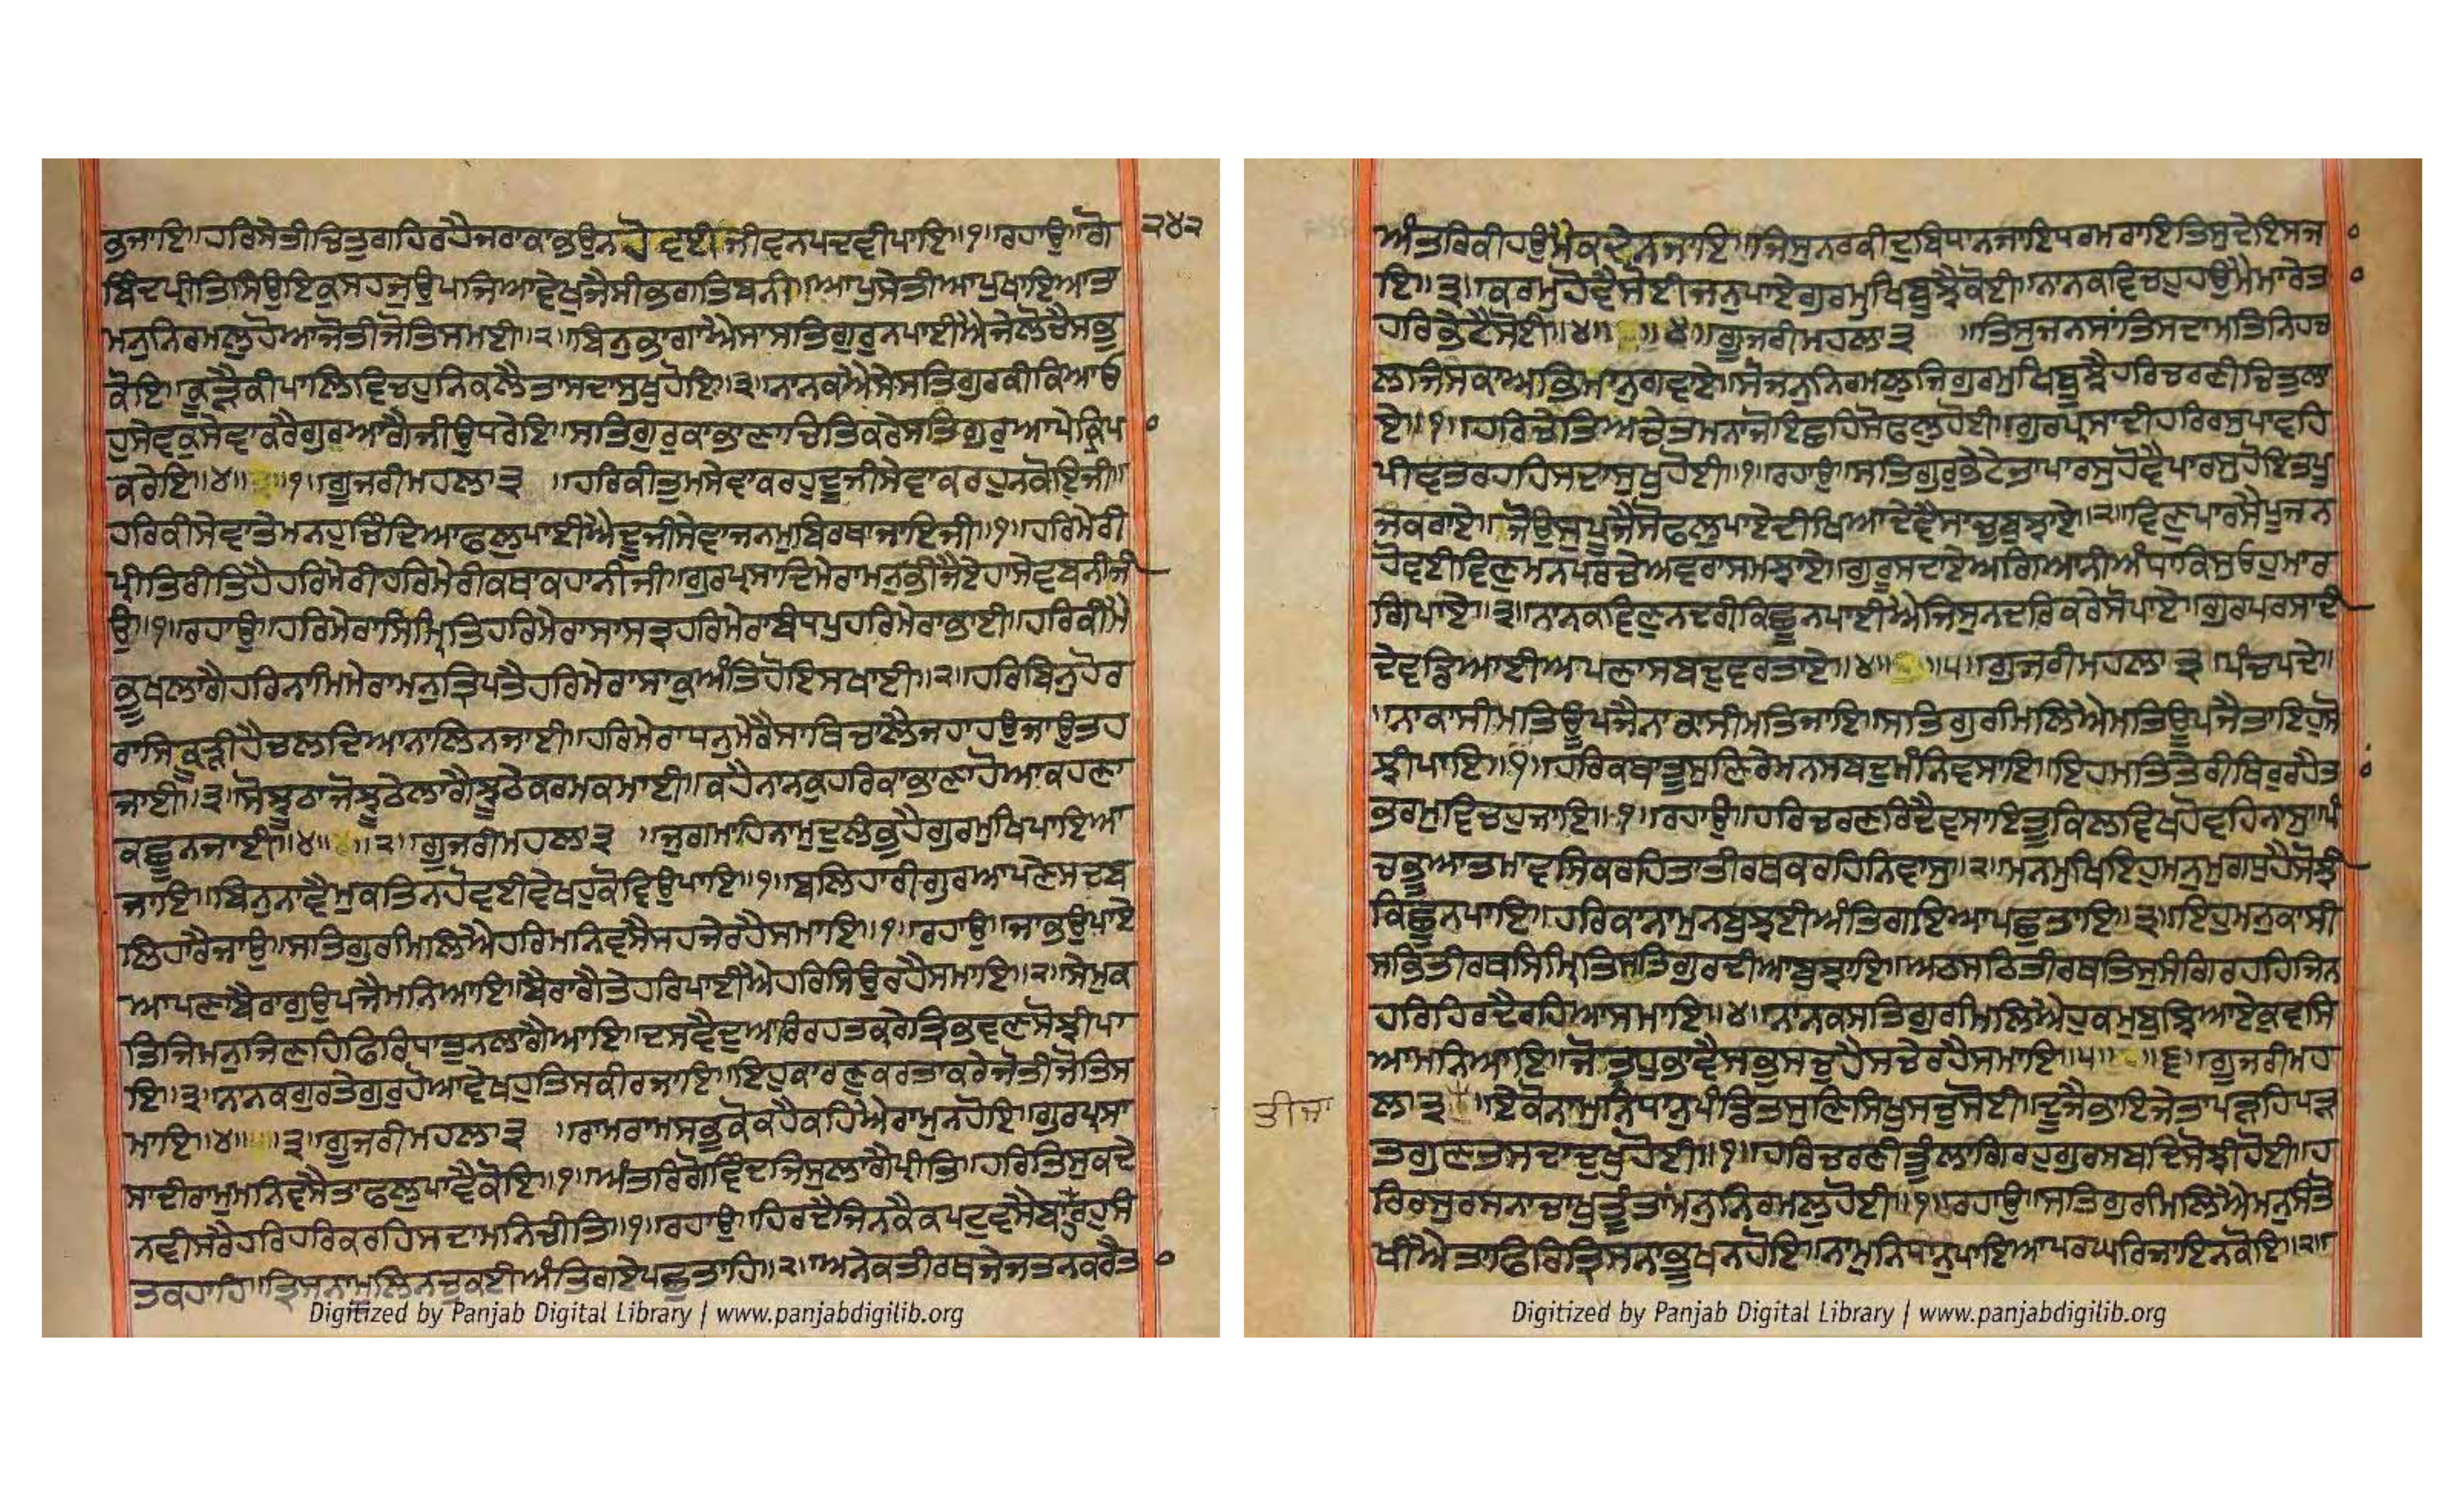 ਭੁਜਾਇ॥ਹਰਿਸੇਤੀਚਿਤੁਗਹਿਰਹੈਜਰਾਕਾਭਉਨਹੋਵਈਜੀਵਨਪਦਵੀਪਾਇ॥੧॥ਰਹਾਉ॥ਗੋ
੨੪੨
ਬਿੰਦਪ੍ਰੀਤਿਸਿਉਇਕੁਸਹਜੁਉਪਜਿਆਵੇਖੁਜੈਸੀਭਗਤਿਬਨੀ॥ਆਪਸੇਤੀਆਪੁਖਾਇਆਤਾ
ਮਨੁਨਿਰਮਲੁਹੋਆਜੋਤੀਜੋਤਿਸਮਈ॥੨॥ਬਿਨੁਭਾਗਾਐਸਾਸਤਿਗੁਰੁਨਪਾਈਐਜੇਲੋਚੈਸਭੁ
ਕੋਇ॥ਕੂੜੈਕੀਪਾਲਿਵਿਚਹੁਨਿਕਲੈਤਾਸਦਾਸੁਖੁਹੋਇ॥੩॥ਨਾਨਕਐਸੇਸਤਿਗੁਰਕੀਕਿਆਓ
ਹੁਸੇਵਕੁਸੇਵਾਕਰੇਗੁਰਆਗੈਜੀਉਧਰੇਇ॥ਸਤਿਗੁਰਕਾਭਾਣਾਚਿਤਿਕਰੇਸਤਿਗੁਰੁਆਪੇਕ੍ਰਿਪਾ
ਕਰੇਇ॥੪॥੧॥ਗੂਜਰੀਮਹਲਾ੩ ॥ਹਰਿਕੀਤੁਮਸੇਵਾਕਰਹੁਦੂਜੀਸੇਵਾਕਰਹੁਨਕੋਇਜੀ॥
ਹਰਿਕੀਸੇਵਾਤੇਮਨਹੁਚਿੰਦਿਆਫਲੁਪਾਈਐਦੂਜੀਸੇਵਾਜਨਮੁਬਿਰਥਾਜਾਇਜੀ॥੧॥ਹਰਿਮੇਰੀ
ਪ੍ਰੀਤਿਰੀਤਿਹੈਹਰਿਮੇਰੀਹਰਿਮੇਰੀਕਥਾਕਹਾਨੀਜੀ॥ਗੁਰਪ੍ਰਸਾਦਿਮੇਰਾਮਨੁਭੀਜੈਏਹਾਸੇਵਬਨੀਜੀ
ਉ॥੧॥ਰਹਾਉ॥ਹਰਿਮੇਰਾਸਿਮ੍ਰਿਤਿਹਰਿਮੇਰਾਸਾਸਤ੍ਰਹਰਿਮੇਰਾਬੰਧਪੁਹਰਿਮੇਰਾਭਾਈ॥ਹਰਿਕੀਮੈ
ਭੂਖਲਾਗੈਹਰਿਨਾਮਿਮੇਰਾਮਨੁਤ੍ਰਿਪਤੈਹਰਿਮੇਰਾਸਾਕੁਅੰਤਿਹੋਇਸਖਾਈ॥੨॥ਹਰਿਬਿਨੁਹੋਰ
ਰਾਸਿਕੂੜੀਹੈਚਲਦਿਆਨਾਲਿਨਜਾਈ॥ਹਰਿਮੇਰਾਧਨੁਮੇਰੈਸਾਥਿਚਾਲੈਜਹਾਹਉਜਾਉਤਹ
ਜਾਈ॥੩॥ਸੋਝੂਠਾਜੋਝੂਠੇਲਾਗੈਝੂਠੇਕਰਮਕਮਾਈ॥ਕਹੈਨਾਨਕੁਹਰਿਕਾਭਾਣਾਹੋਆਕਹਣਾ
ਕਛੂਨਜਾਈ॥੪॥੨॥ਗੂਜਰੀਮਹਲਾ੩ ॥ਜੁਗਮਾਹਿਨਾਮੁਦੁਲੰਭੁਹੈਗੁਰਮੁਖਿਪਾਇਆ
ਜਾਇ॥ਬਿਨੁਨਾਵੈਮੁਕਤਿਨਹੋਵਈਵੇਖਹੁਕੋਵਿਉਪਾਇ॥੧॥ਬਲਿਹਾਰੀਗੁਰਆਪਣੇਸਦਬ
ਲਿਹਾਰੈਜਾਉ॥ਸਤਿਗੁਰਮਿਲਿਐਹਰਿਮਨਿਵਸੈਸਹਜੇਰਹੈਸਮਾਇ॥੧॥ਰਹਾਉ॥ਜਾਭਉਪਾਏ
ਆਪਣਾਬੈਰਾਗੁਉਪਜੈਮਨਿਆਇ॥ਬੈਰਾਗੈਤੇਹਰਿਪਾਈਐਹਰਿਸਿਉਰਹੈਸਮਾਇ॥੨॥ਸੇਮੁਕ
ਤਿਜਿਮਨੁਜਿਣਹਿਫਿਰਿਧਾਤੁਨਲਾਗੈਆਇ॥ਦਸਵੈਦੁਆਰਿਰਹਤਕਰੇਤ੍ਰਿਭਵਣਸੋਝੀਪਾ
ਇ॥੩॥ਨਾਨਕਗੁਰਤੇਗੁਰੁਹੋਆਵੇਖਹੁਤਿਸਕੀਰਜਾਇ॥ਇਹੁਕਾਰਣੁਕਰਤਾਕਰੇਜੋਤੀਜੋਤਿਸ
ਮਾਇ॥੪॥੩॥ਗੂਜਰੀਮਹਲਾ੩ ॥ਰਾਮਰਾਮਸਭੁਕੋਕਹੈਕਹਿਐਰਾਮੁਨਹੋਇ॥ਗੁਰਪ੍ਰਸਾ
ਸਾਦੀਰਾਮੁਮਨਿਵਸੈਤਾਫਲੁਪਾਵੈਕੋਇ॥੧॥ਅੰਤਰਿਗੋਵਿੰਦਜਿਸੁਲਾਗੈਪ੍ਰੀਤਿ॥ਹਰਿਤਿਸੁਕਦੇ
ਨਵੀਸਰੈਹਰਿਹਰਿਕਰਹਿਸਦਾਮਨਿਚੀਤਿ॥੧॥ਰਹਾਉ॥ਹਿਰਦੈਜਿਨਕੈਕਪਟੁਵਸੈਬਾਹਰਹੁਸੰ
ਤਕਹਾਹਿ॥ਤ੍ਰਿਸਨਾਮੂਲਿਨਚੁਕਈਅੰਤਿਗਏਪਛੁਤਾਹਿ॥੨॥ਅਨੇਕਤੀਰਥਜੇਜਤਨਕਰੈਤਾ
Digitized by Panjab Digital Library | www.panjabdigilib.org
ਅੰਤਰਿਕੀਹਉਮੈਕਦੇਨਜਾਇ॥ਜਿਸੁਨਰਕੀਦੁਬਿਧਾਨਜਾਇਧਰਮਰਾਇਤਿਸੁਦੇਇਸਜਾ
ਇ॥੩॥ਕਰਮੁਹੋਵੈਸੋਈਜਨੁਪਾਏਗੁਰਮੁਖਿਬੂਝੈਕੋਈ॥ਨਾਨਕਵਿਚਹੁਹਉਮੈਮਾਰੇਤਾ
ਹਰਿਭੇਟੈਸੋਈ॥੪॥੪॥ਗੂਜਰੀਮਹਲਾ੩ ॥ਤਿਸੁਜਨਸਾਂਤਿਸਦਾਮਤਿਨਿਹਚ
ਲਜਿਸਕਾਅਭਿਮਾਨੁਗਵਾਏ॥ਸੋਜਨੁਨਿਰਮਲੁਜਿਗੁਰਮੁਖਿਬੂਝੈਹਰਿਚਰਣੀਚਿਤੁਲਾ
ਏ॥੧॥ਹਰਿਚੇਤਿਅਚੇਤਮਨਾਜੋਇਛਹਿਸੋਫਲੁਹੋਈ॥ਗੁਰਪ੍ਰਸਾਦੀਹਰਿਰਸੁਪਾਵਹਿ
ਪੀਵਤਰਹਹਿਸਦਾਸੁਖੁਹੋਈ॥੧॥ਰਹਾਉ॥ਸਤਿਗੁਰੁਭੇਟੇਤਾਪਾਰਸੁਹੋਵੈਪਾਰਸੁਹੋਇਤਪੂ
ਜਕਰਾਏ॥ਜੋਉਸੁਪੂਜੈਸੋਫਲੁਪਾਏਦੀਖਿਆਦੇਵੈਸਾਚੁਬੁਝਾਏ॥੨॥ਵਿਣੁਪਾਰਸੈਪੂਜਨ
ਹੋਵਈਵਿਣੁਮਨਪਰਚੇਅਵਰਾਸਮਝਾਏ॥ਗੁਰੂਸਦਾਏਅਗਿਆਨੀਅੰਧਾਕਿਸੁਓਹੁਮਾਰ
ਗਿਪਾਏ॥੩॥ਨਾਨਕਵਿਣੁਨਦਰੀਕਿਛੂਨਪਾਈਐਜਿਸੁਨਦਰਿਕਰੇਸੋਪਾਏ॥ਗੁਰਪਰਸਾਦੀ
ਦੇਵਡਿਆਈਅਪਣਾਸਬਦੁਵਰਤਾਏ॥੪॥੫॥ਗੂਜਰੀਮਹਲਾ੩॥ਪੰਚਪਦੇ॥
॥ਨਾਕਾਸੀਮਤਿਊਪਜੈਨਾਕਾਸੀਮਤਿਜਾਇ॥ਸਤਿਗੁਰਮਿਲਿਐਮਤਿਊਪਜੈਤਾਇਹਸੋ
ਝੀਪਾਇ॥੧॥ਹਰਿਕਥਾਤੂਸੁਣਿਰੇਮਨਸਬਦੁਮੰਨਿਵਸਾਇ॥ਇਹਮਤਿਤੇਰੀਥਿਰੁਰਹੈਤਾ
ਭਰਮੁਵਿਚਹੁਜਾਇ॥੧॥ਰਹਾਉ॥ਹਰਿਚਰਣਰਿਦੈਵਸਾਇਤੂਕਿਲਵਿਖਹੋਵਹਿਨਾਸੁ॥ਪੰ
ਚਭੂਆਤਮਾਵਸਿਕਰਹਿਤਾਤੀਰਥਕਰਹਿਨਿਵਾਸੁ॥੨॥ਮਨਮੁਖਿਇਹੁਮਨੁਮੁਗਧੁਹੈਸੋਝੀ
ਕਿਛੂਨਪਾਇ॥ਹਰਿਕਾਨਾਮੁਨਬੁਝਈਅੰਤਿਗਇਆਪਛੁਤਾਇ॥੩॥ਇਹੁਮਨੁਕਾਸੀ
ਸਭਿਤੀਰਥਸਿਮ੍ਰਿਤਿਸਤਿਗੁਰਦੀਆਬੁਝਾਇ॥ਅਠਸਠਿਤੀਰਥਤਿਸੁਸੰਗਿਰਹਹਿਜਿਨ
ਹਰਿਹਿਰਦੈਰਹਿਆਸਮਾਇ॥੪॥ਨਾਨਕਸਤਿਗੁਰਮਿਲਿਐਹੁਕਮੁਬੁਝਿਆਏਕੁਵਸਿ
ਆਮਨਿਆਇ॥ਜੋਤੁਧੁਭਾਵੈਸਭੁਸਚੁਹੈਸਚੇਰਹੈਸਮਾਇ॥੫॥੬॥ਗੂਜਰੀਮਹ
ਤੀਜਾ
ਲਾ੩ ॥ਏਕੋਨਾਮੁਨਿਧਾਨੁਪੰਡਿਤਸੁਣਿਸਿਖੁਸਚੁਸੋਈ॥ਦੂਜੈਭਾਇਜੇਤਾਪੜਹਿਪੜ
ਤਗੁਣਤਸਦਾਦੁਖੁਹੋਈ॥੧॥ਹਰਿਚਰਣੀਤੂੰਲਾਗਿਰਹੁਗੁਰਸਬਦਿਸੋਝੀਹੋਈ॥ਹ
ਰਿਰਸੁਰਸਨਾਚਾਖੁਤੂੰਤਾਂਮਨੁਨਿਰਮਲੁਹੋਈ॥੧॥ਰਹਾਉ॥ਸਤਿਗੁਰਮਿਲਿਐਮਨੁਸੰਤੋ
ਖੀਐਤਾਫਿਰਿਤ੍ਰਿਸਨਾਭੂਖਨਹੋਇ॥ਨਾਮੁਨਿਧਾਨੁਪਾਇਆਪਰਘਰਿਜਾਇਨਕੋਇ॥੨॥
Digitized by Panjab Digital Library | www.panjabdigilib.org